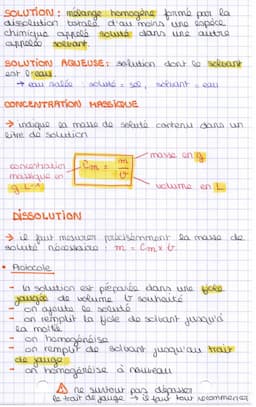 SOLUTION : mélange homogène formé par la
dissolution totale d'au moins une espèce
chimique appelée soluté dans une autre
appelée solvant.
SOLUTION AQUEUSE : solution dont le solvant
est l'eau.
→ eau salée : soluté = sel, solvant = eau
CONCENTRATION MASSIQUE
→ indique la masse de soluté contenu dans un
litre de solution
masse en g
concentration
massique en
g.L⁻¹
Cm = m / V
volume en L
DISSOLUTION
→ il faut mesurer précisémment la masse de
soluté nécessaire : m = Cm x V
• Protocole
- la solution est préparée dans une fiole
jaugée de volume V souhaité
- on ajoute le soluté
- on remplit la fiole de solvant jusqu'à
la moitié
- on homogénéise
- on remplit de solvant jusqu'au trait
de jauge
- on homogénéise à nouveau
⚠ ne surtout pas dépasser
le trait de jauge → il faut tout recommencer